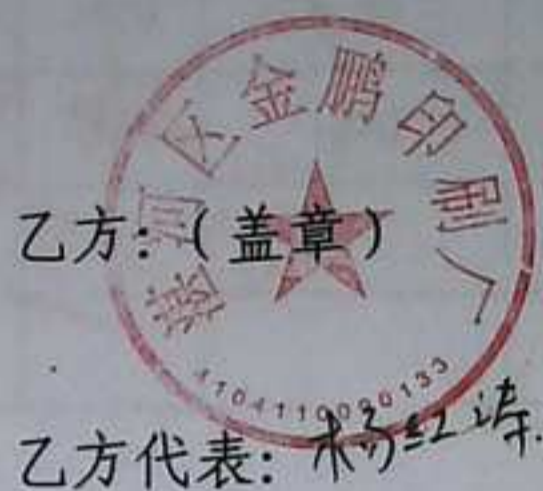 湛河区金鹏印刷厂
乙方:(盖章)
4104110090133
乙方代表: 杨红涛